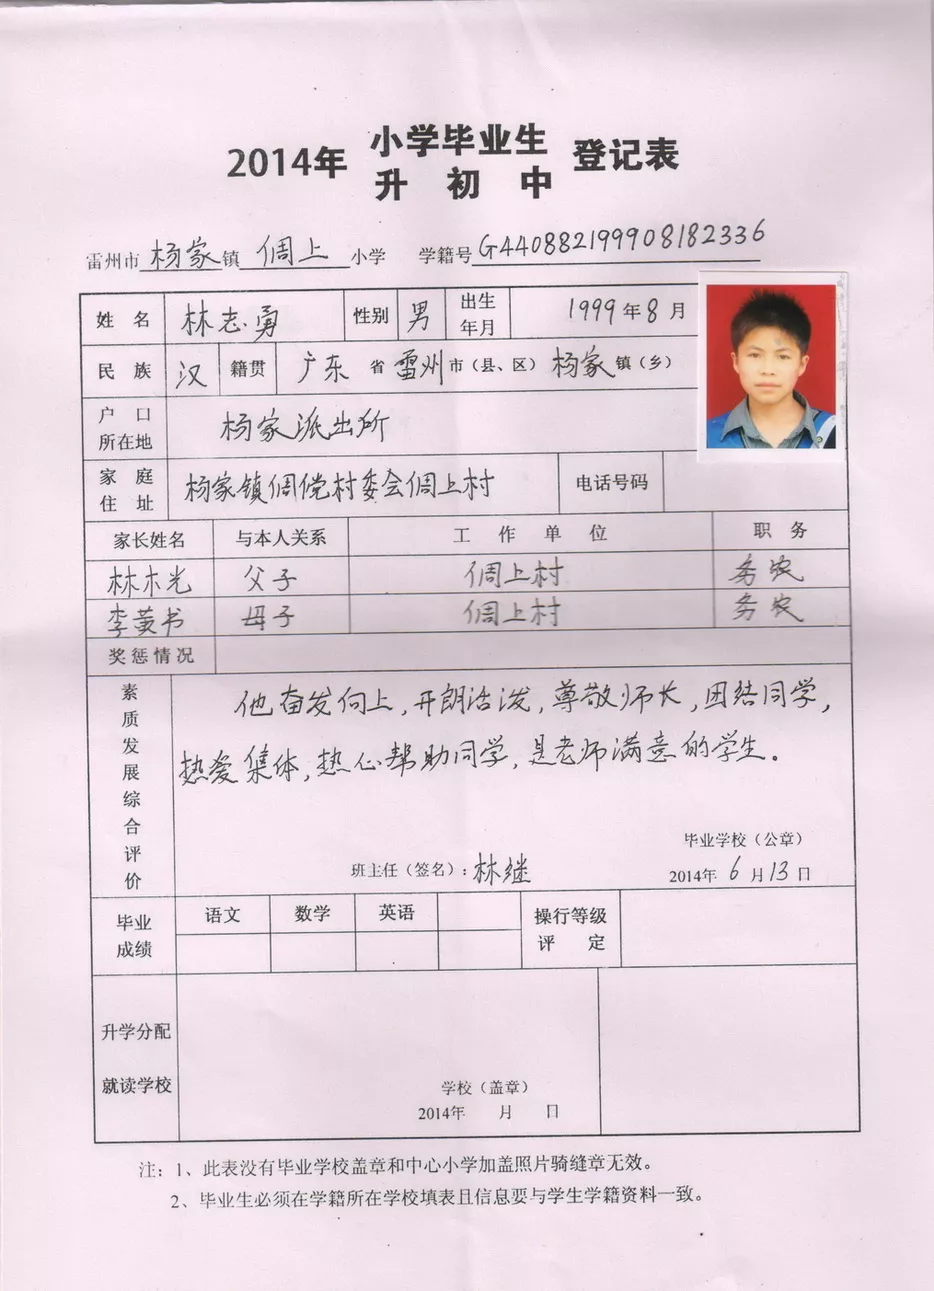 2014年 小学毕业生 升初中 登记表
雷州市杨家镇倜上小学 学籍号G440882199908182336
姓名 林志勇 性别 男 出生年月 1999年8月
民族 汉 籍贯 广东省雷州市(县、区)杨家镇(乡)
户口所在地 杨家派出所
家庭住址 杨家镇倜傥村委会倜上村 电话号码
家长姓名 与本人关系 工作单位 职务
林木光 父子 倜上村 务农
李黄书 母子 倜上村 务农
奖惩情况
素质发展综合评价
他奋发向上,开朗活泼,尊敬师长,团结同学,
热爱集体,热心帮助同学,是老师满意的学生。
毕业学校(公章)
班主任(签名):林继 2014年6月13日
毕业成绩 语文 数学 英语 操行等级评定
升学分配
就读学校
学校(盖章)
2014年 月 日
注:1、此表没有毕业学校盖章和中心小学加盖照片骑缝章无效。
2、毕业生必须在学籍所在学校填表且信息要与学生学籍资料一致。